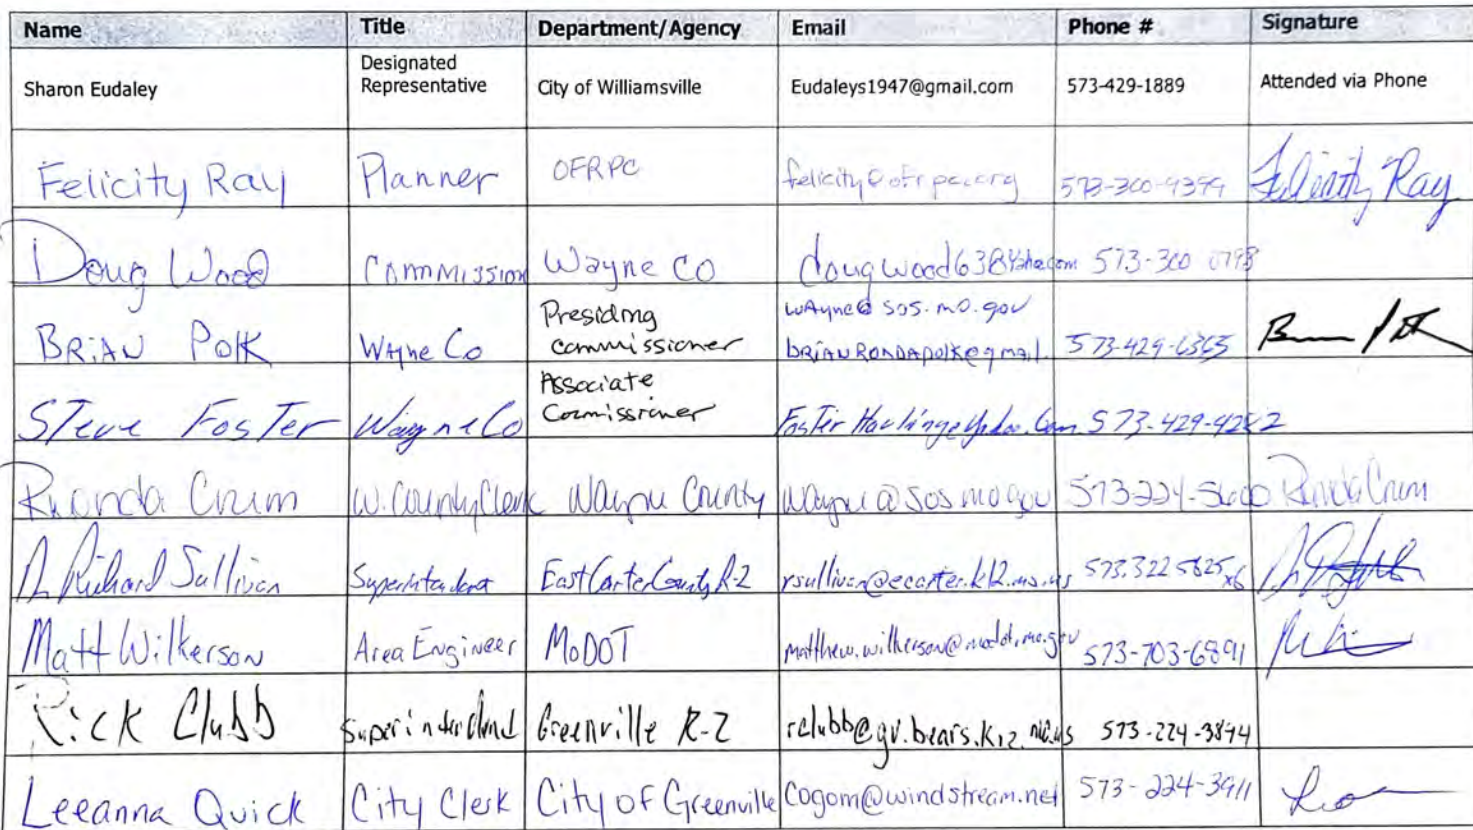 Name Title Department/Agency Email Phone # Signature
Sharon Eudaley Designated Representative City of Williamsville Eudaleys1947@gmail.com 573-429-1889 Attended via Phone
Felicity Ray Planner OFRPC felicity@ofrpc.org Felicity Ray
Doug Wood Commission Wayne Co
BRIAN POLK Wayne Co Presiding commissioner wayne@sos.mo.gov
Steve Foster Wayne Co Associate Commissioner
Rhonda Crum W. County Clerk Wayne County wayne@sos.mo.gov 573-224-5600 Rhonda Crum
Richard Sullivan Superintendent East Carter County R-2 573.322 5625 x6
Matt Wilkerson Area Engineer MoDOT matthew.wilkerson@modot.mo.gov 573-703-6891
Rick Clubb Superintendend Greenville R-2 rclubb@gv.bears.k12.mo.us 573-224-3844
Leeanna Quick City Clerk City of Greenville Cogom@windstream.net 573-224-3911